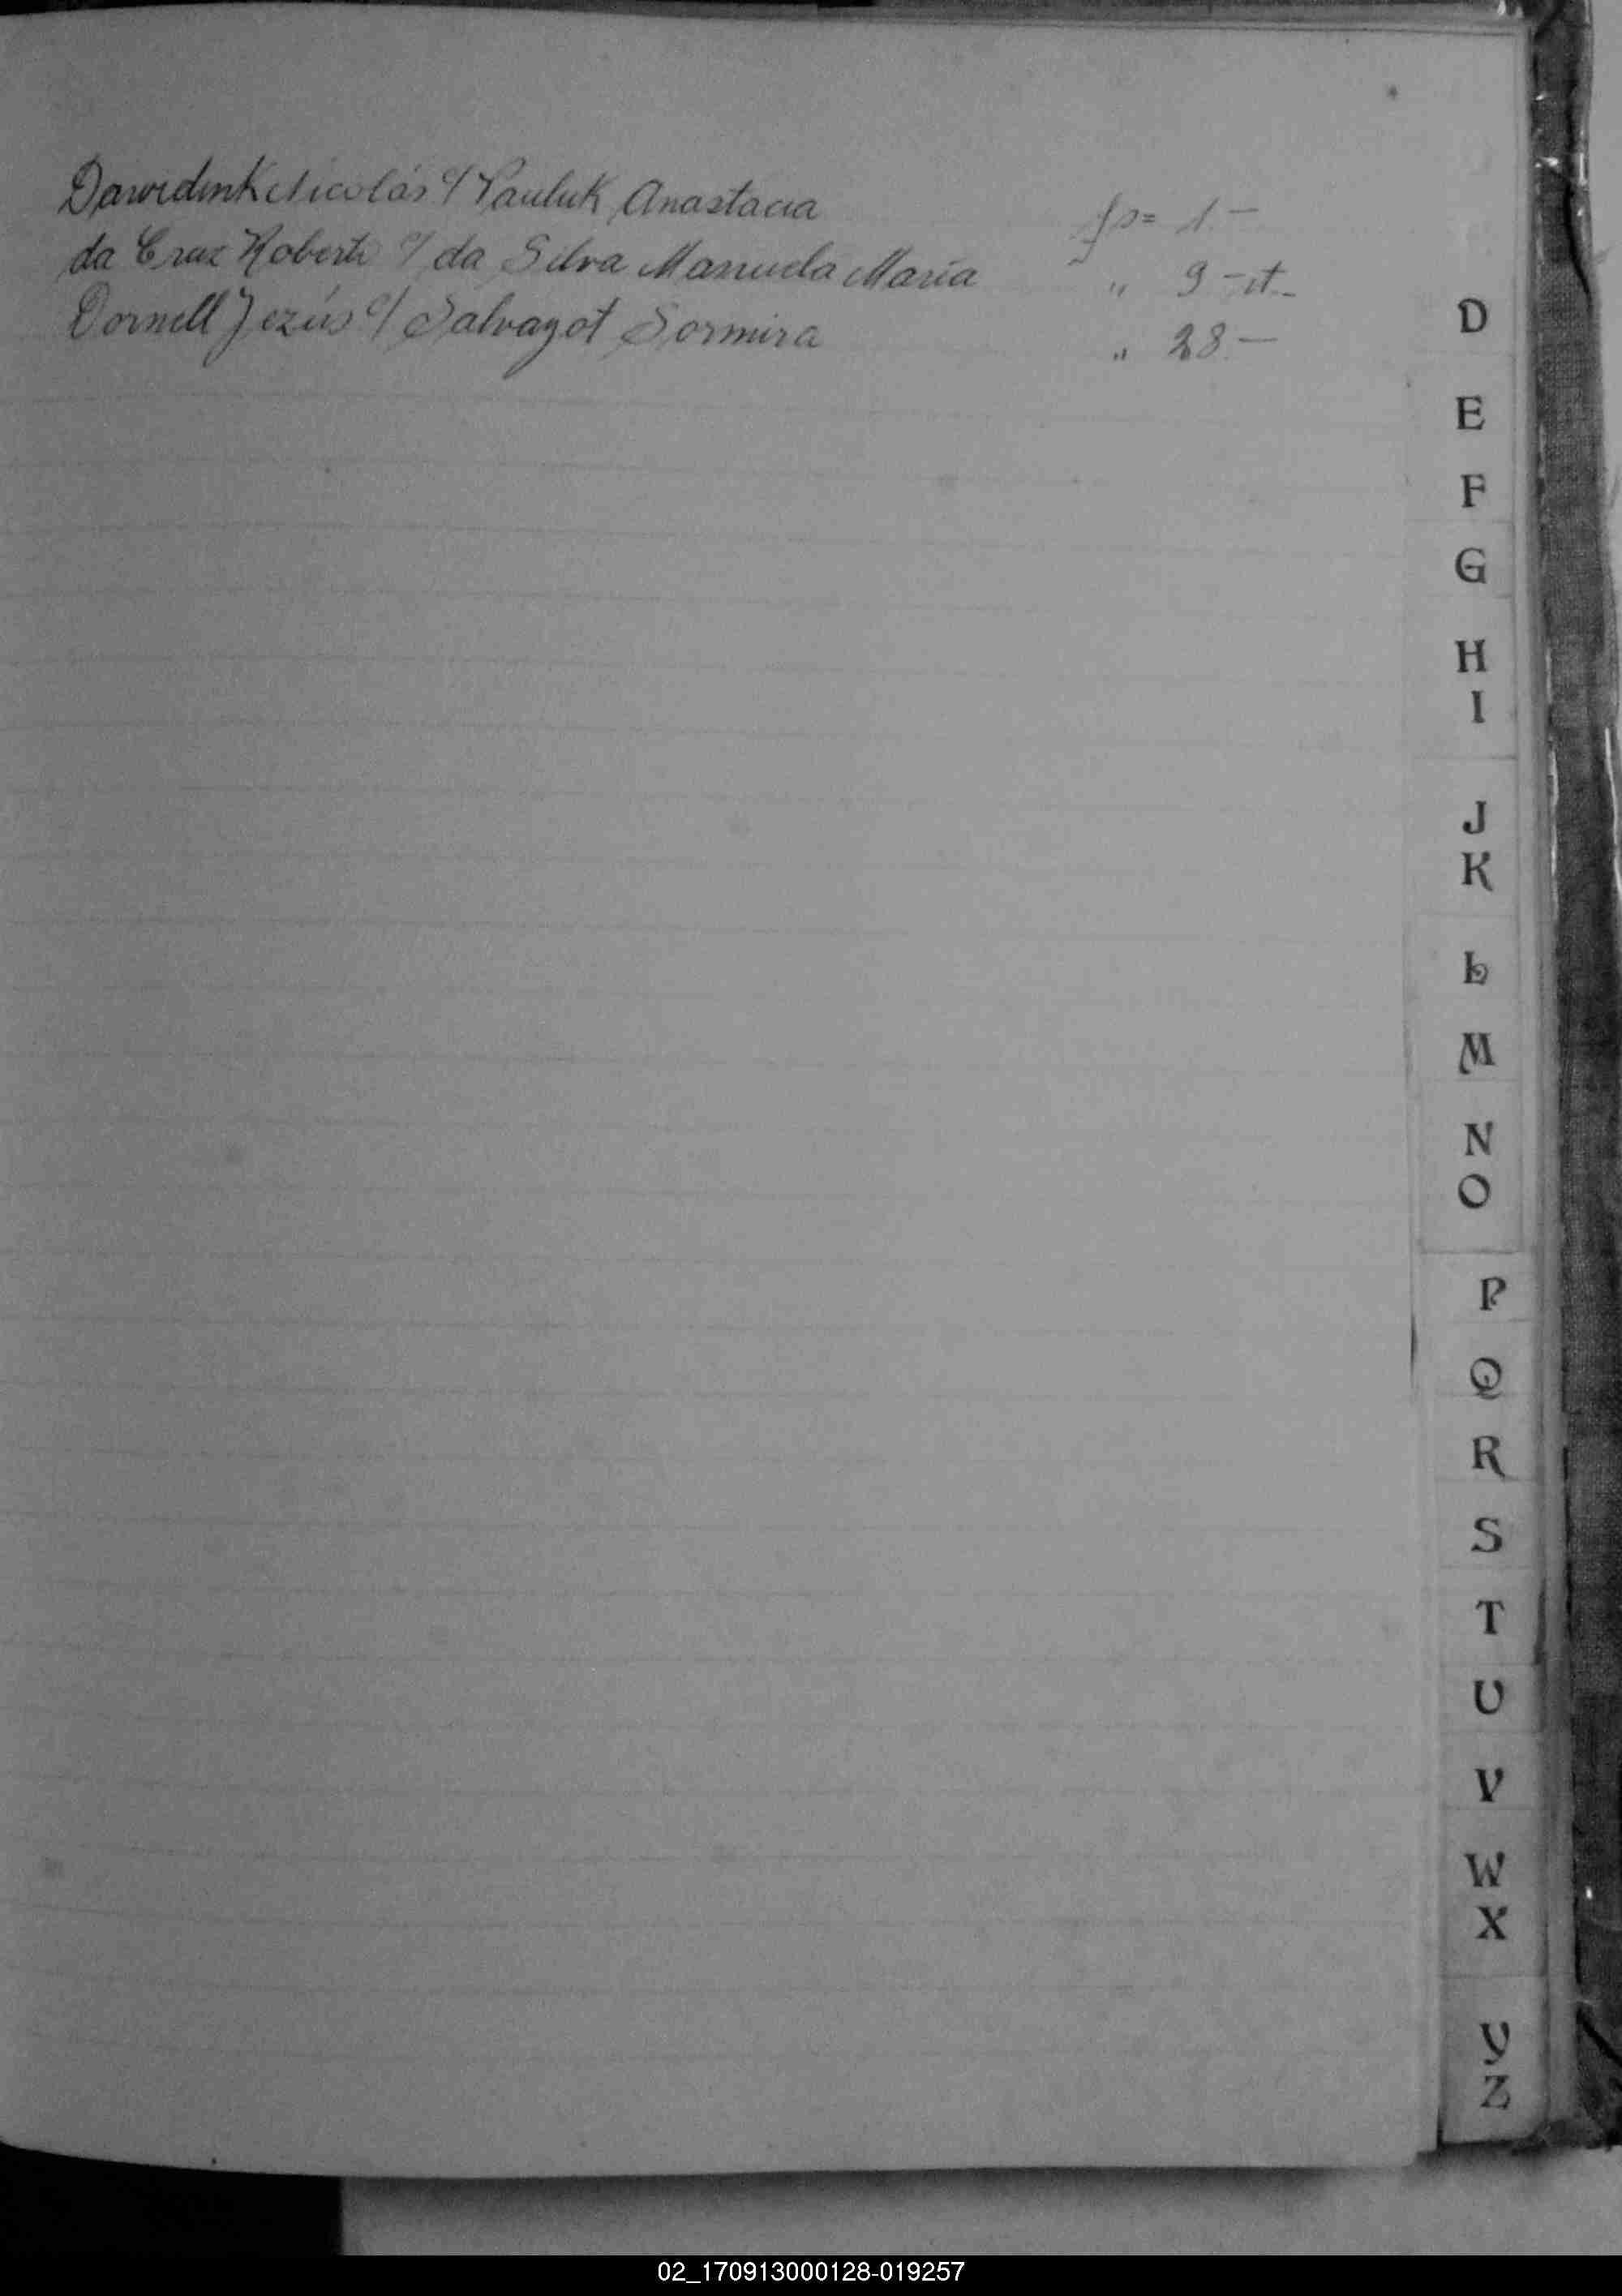 Dawidiuk Nicolás c/ Pauluk Anastacia fp= 1.-
da Cruz Roberto c/ da Silva Manuela Maria " 9 -it-
Dornell Jezús c/ Salvagot Sormira " 28.-
D
E
F
G
H
I
J
K
L
M
N
O
P
Q
R
S
T
U
V
W
X
Y
Z
02_170913000128-019257